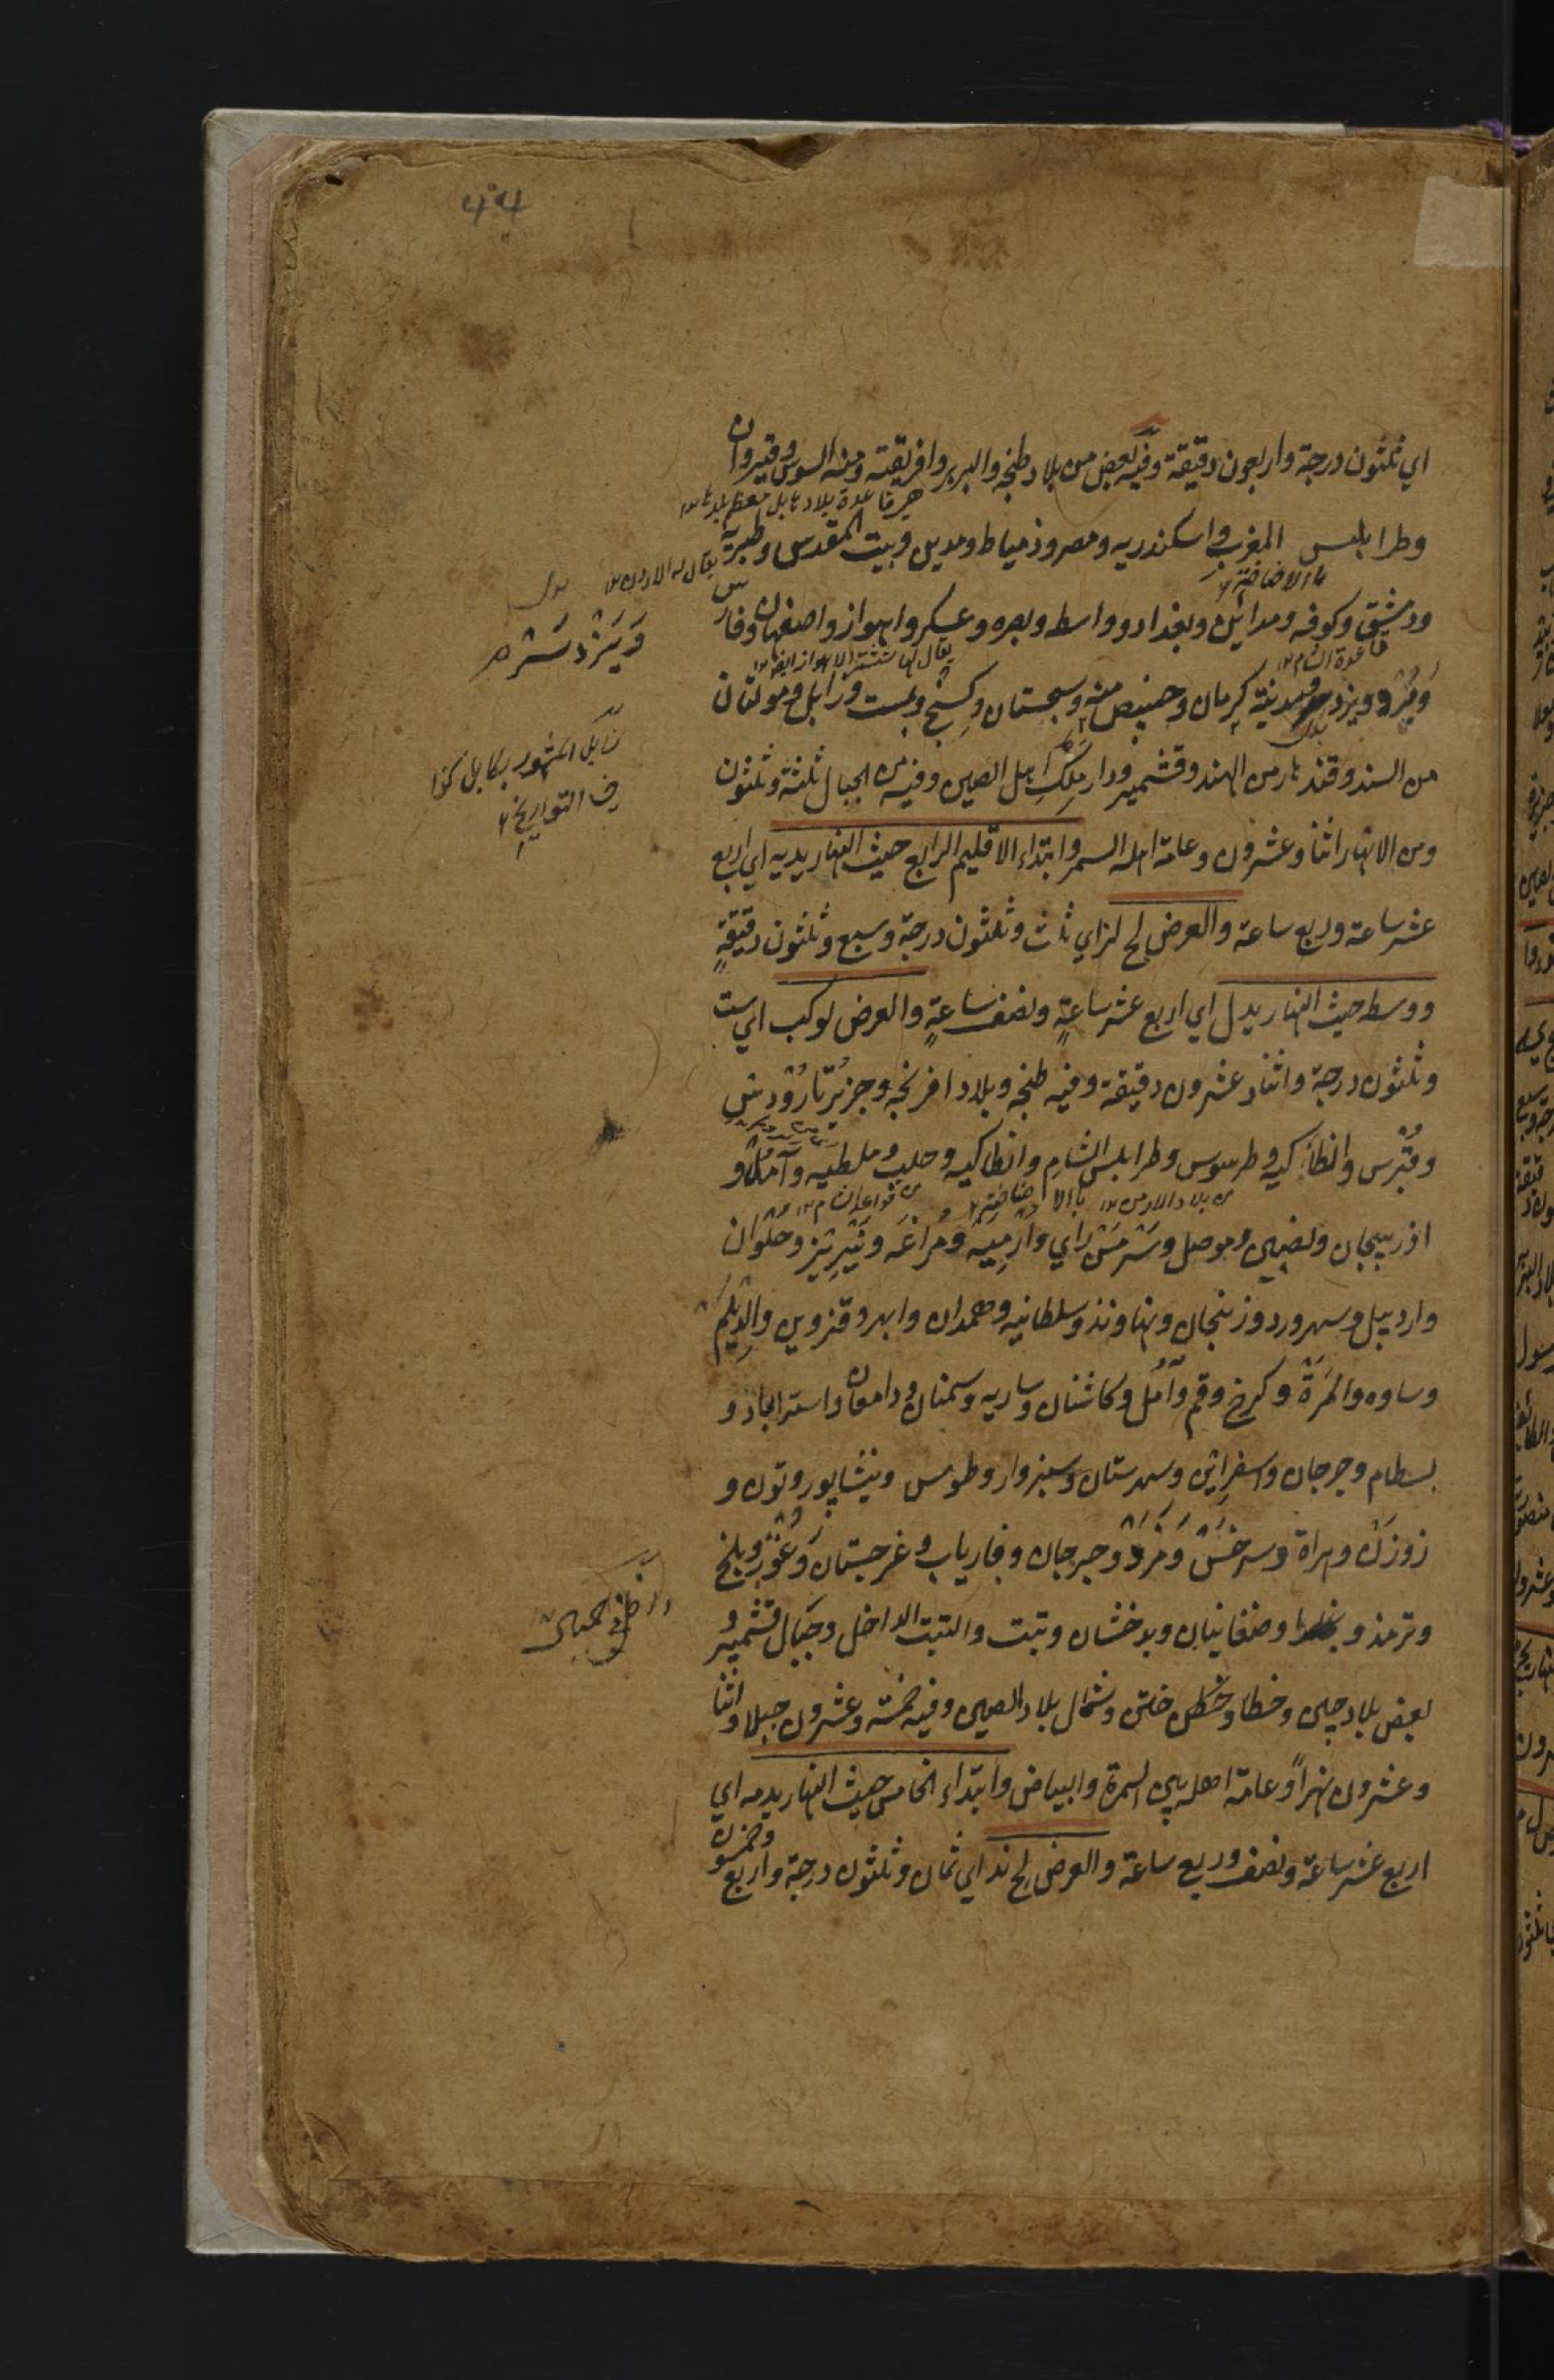 اي ثلثون درجة واربعون دقيقة وفيه بعض من بلاد طنجه والبربر وافريقته ومنه السوس وقيروان
وطرابلس المغرب واسكندريه ومصر وذمياط ومدين وبيت المقدس وطبرية
ودمشق وكوفه ومدائن وبغداد وواسط وبصره وعسكر واهواز واصفهان وفارس
ويزد ومدينة كرمان وحنيص منه وسجستان وكسنج وبست وزابل ومولتان
من السند وقندهار من الهند وقشمير ودار ملك اهل الصين وفيه من الجبال ثلثة وثلثون
ومن الانهار اثنا وعشرون وعامة اهله السمر وابتداء الاقليم الرابع حيث النهار يديه اي اربع
عشر ساعة وربع ساعة والعرض لج لز اي ثلث وثلثون درجة وسبع وثلثون دقيقةٍ
ووسطه حيث النهار يدل اي اربع عشر ساعةٍ ونصف ساعةٍ والعرض لو كب اي ست
وثلثون درجة واثنا وعشرون دقيقة وفيه طنجه وبلاد افرنجه وجزيرتا رودس
وقبرس وانطاكيه وطرسوس وطرابلس الشام وانطاكيه وحلب وملطيه وآمد و
اذربيجان ونصيبين وموصل وسر من راي وارميه ومراغه وتبريز وحلوان
واردبيل وسهرورد وزنجان ونهاوند وسلطانيه وهمدان وابهر وقزوين والديلم
وساوه والمرة وكرخ وقم وآمل وكاشان وساريه وسمنان ودامغان واستراباد و
بسطام وجرجان واسفراين وسهرستان وسبزوار وطوس ونيشاپور وتون و
زوزن وهراة وسرخس ومرو وجرجان وفارياب وغرجستان وغور وبلخ
وترمذ وصنغانيان وبدخشان وتبت والتبت الداخل وجبال قشمير و
بعض بلاد چين وخطا وختن وشمال بلاد الصين وفيه خمسة وعشرون جبلا واثنا
وعشرون نهراً وعامة اهله بين السمرة والبياض وابتداء الخامس حيث النهار يدمه اي
اربع عشر ساعة ونصف وربع ساعة والعرض لح ند اي ثمان وثلثون درجة واربع وخمسون
زابل المشهور بكابل كذا
في التواريخ